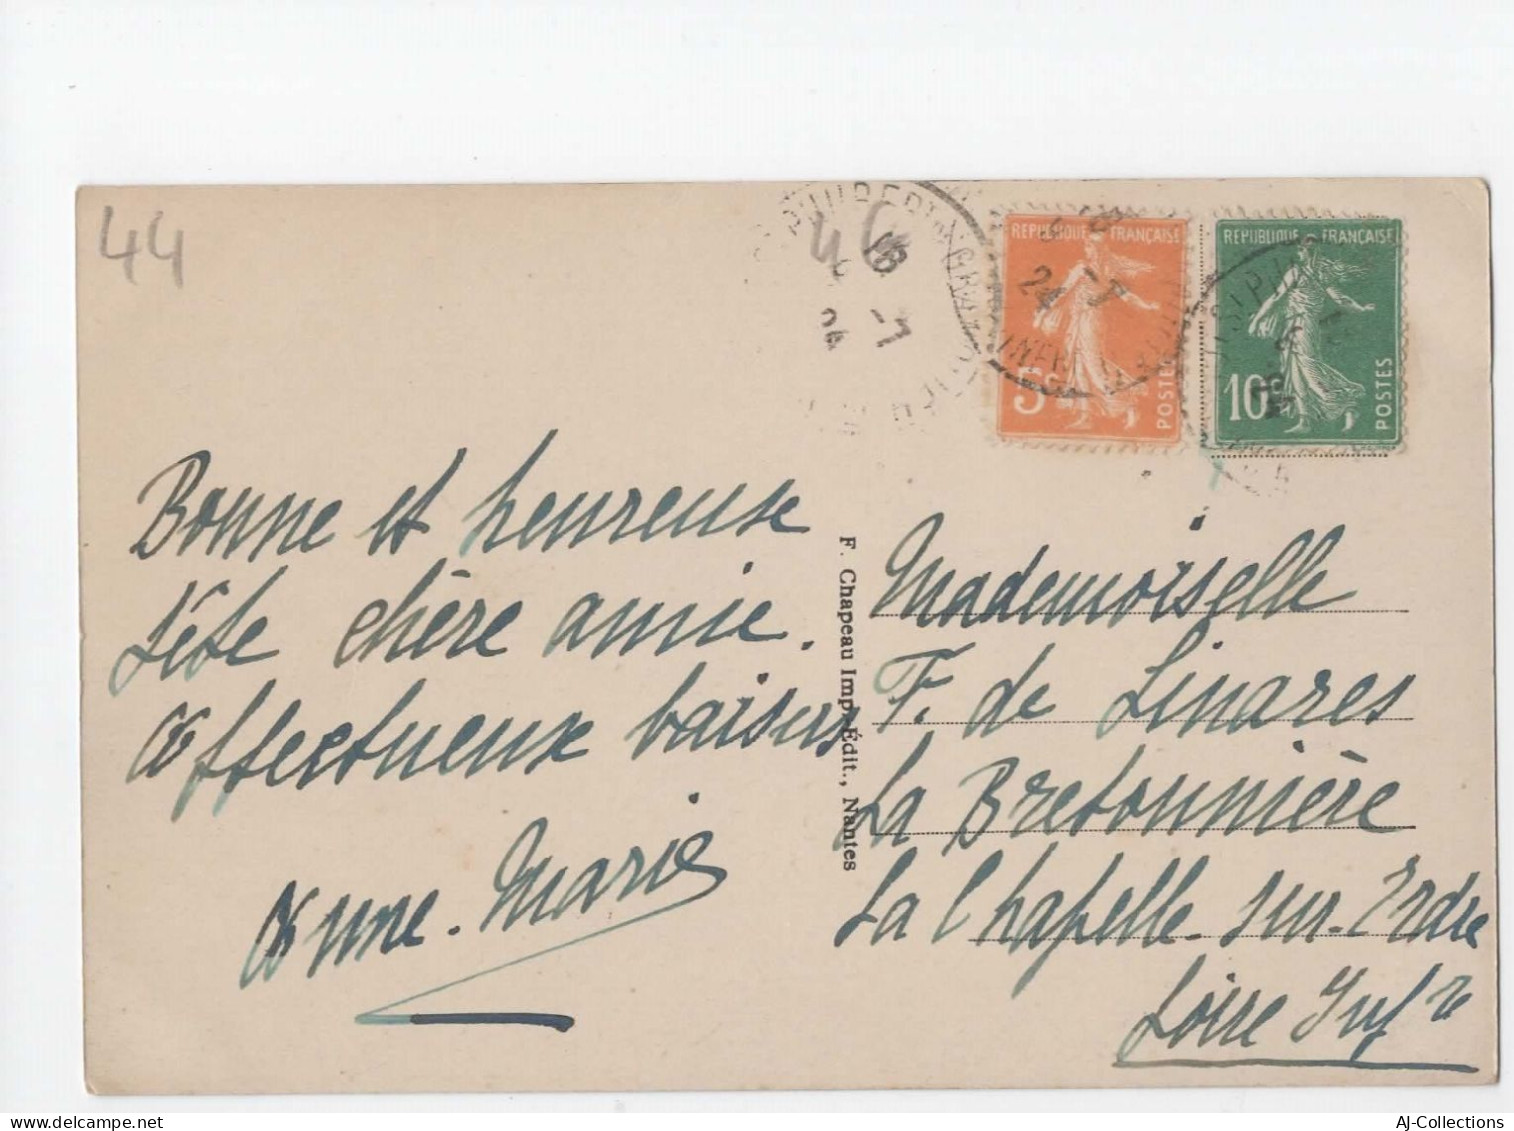 44
46
RÉPUBLIQUE FRANÇAISE
5c
POSTES
RÉPUBLIQUE FRANÇAISE
10c
POSTES
24 -7
Bonne et heureuse
fête chère amie.
Affectueux baisers
Anne-Marie
F. Chapeau Imp.-Édit., Nantes
Mademoiselle
F. de Linares
La Bretonnière
La Chapelle-sur-Erdre
Loire Infre
AJ-Collections